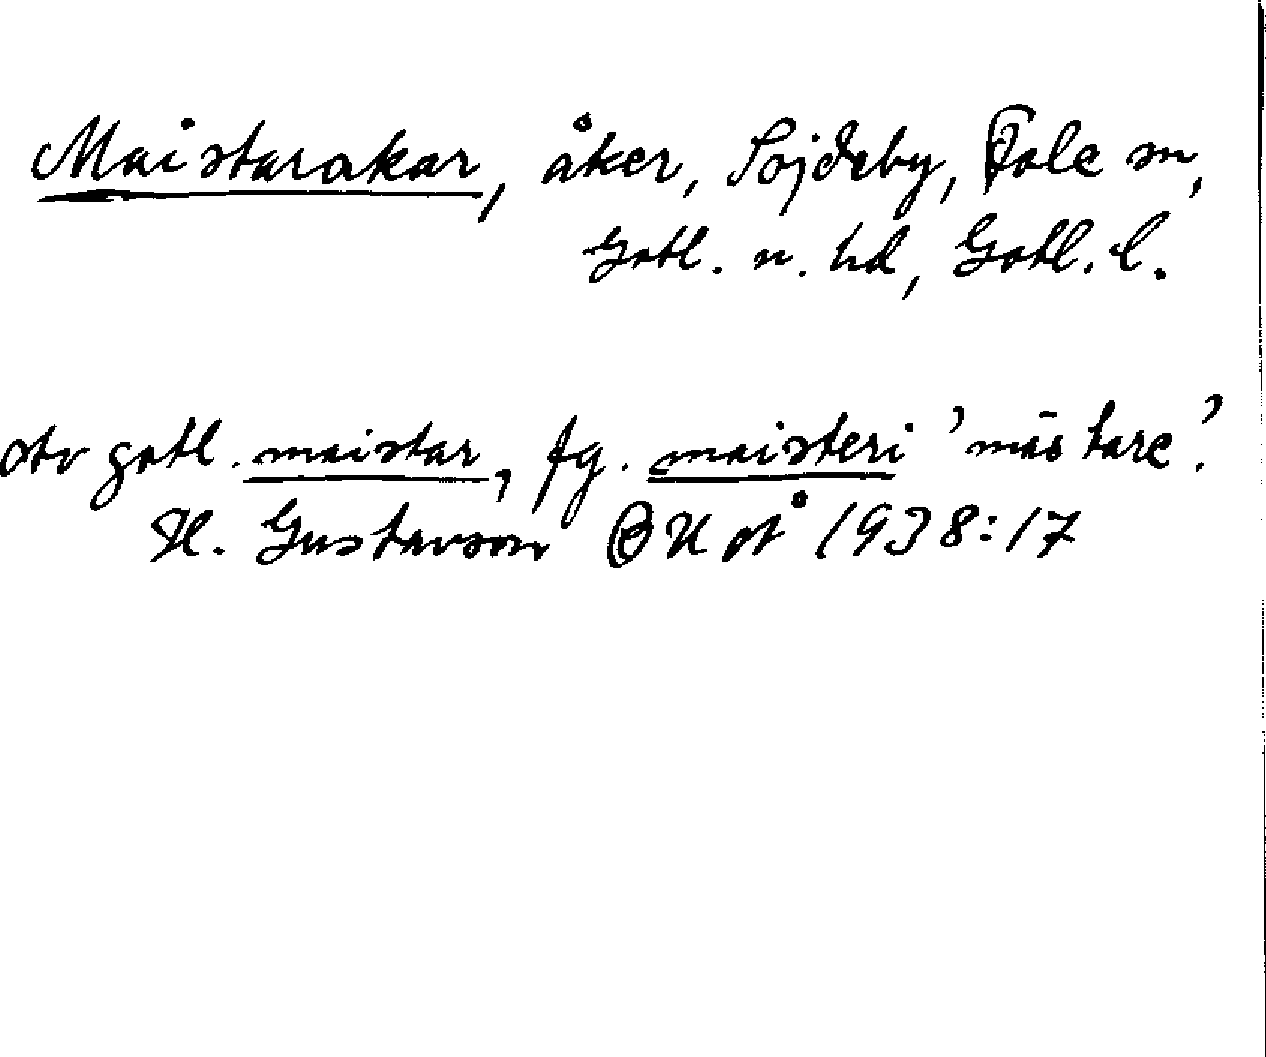 Maistarakar, åker, Sojdeby, Fole sn,
Gotl. n. hd, Gotl. l.
Av gotl. maistar, fg. maisteri 'mästare'.
H. Gustavson OUÅ 1938:17